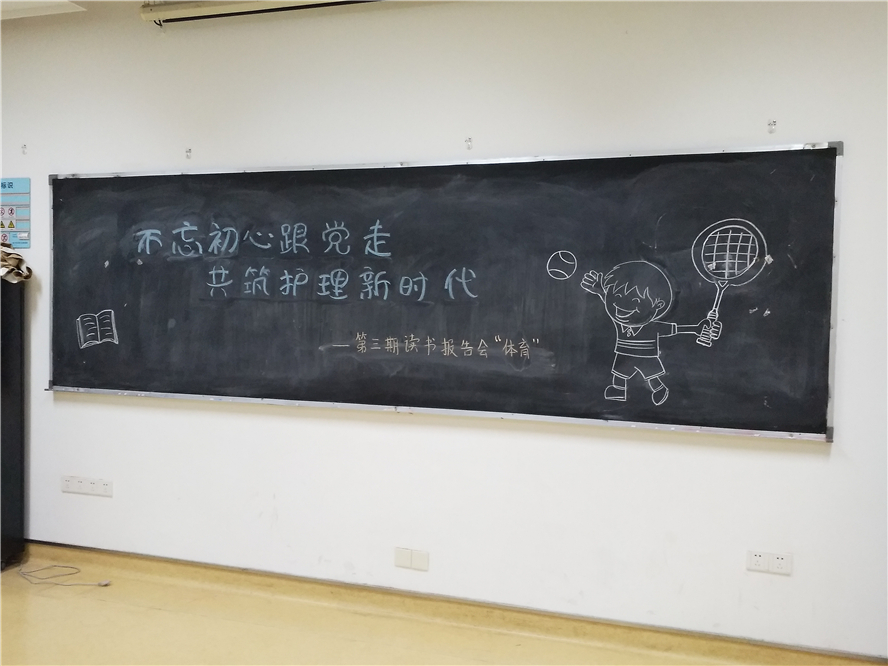 不忘初心跟党走
共筑护理新时代
—第三期读书报告会“体育”
标识